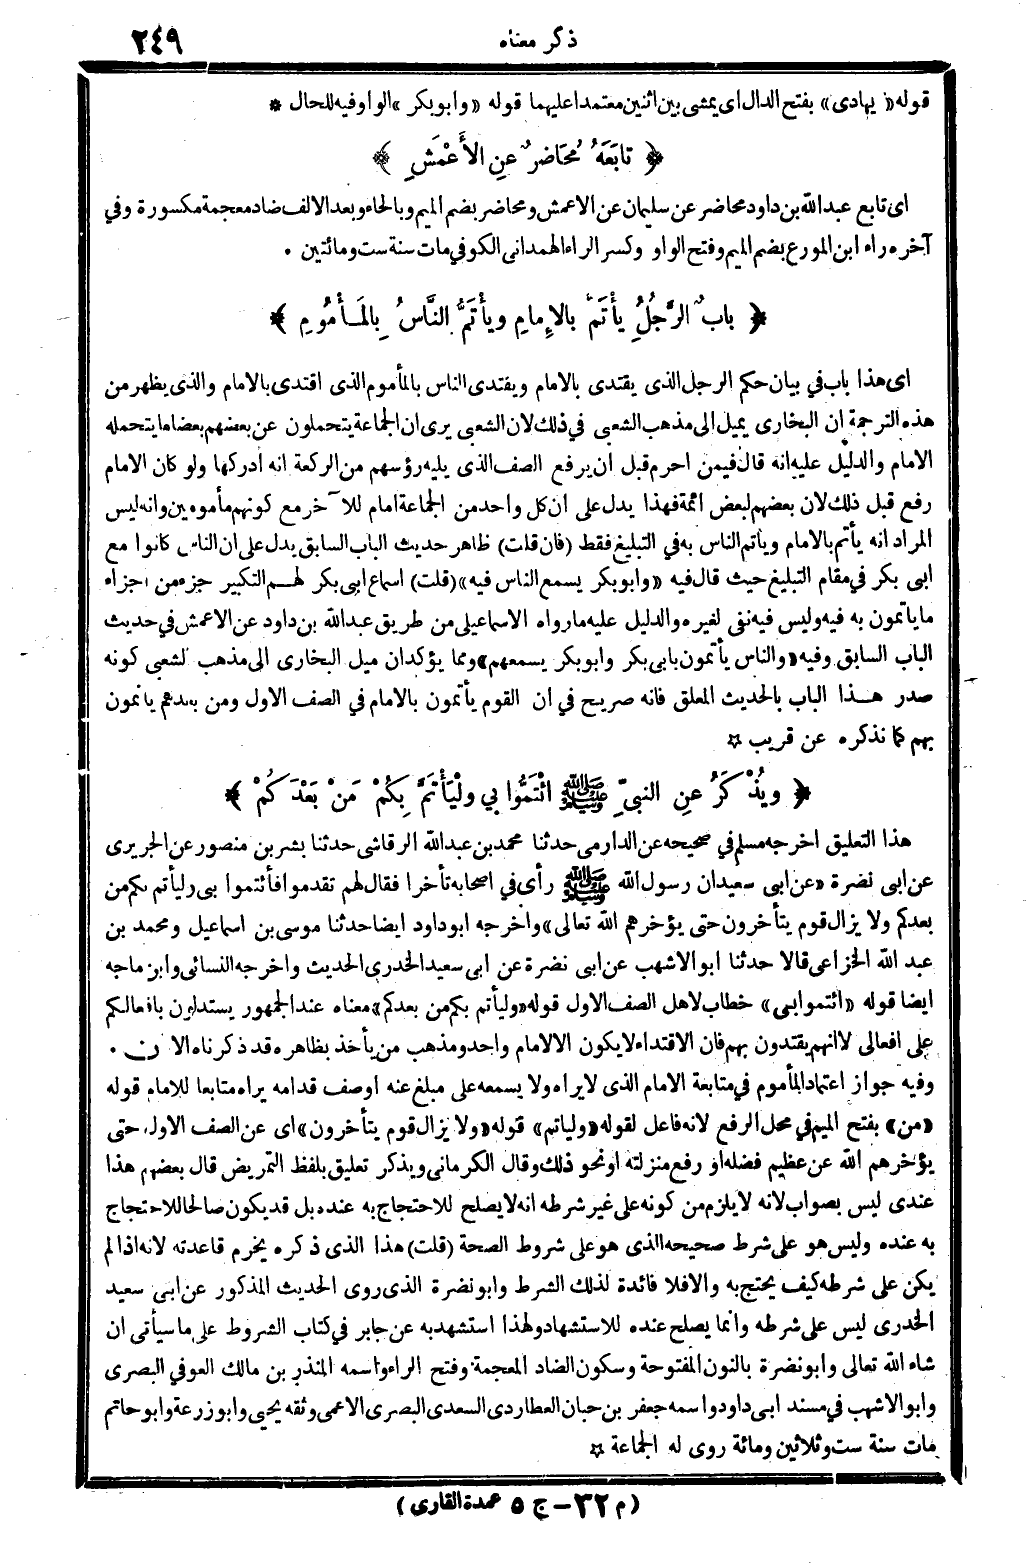 ذكر معناه
٢٤٩
قوله «يهادى» بفتح الدال اى يمشى بين اثنين معتمدا عليهما قوله «وابو بكر» الواو فيه للحال *
﴿ تابَعَهُ مُحَاضرٌ عنِ الأَعْمَشِ ﴾
اى تابع عبد الله بن داود محاضر عن سليمان عن الاعمش ومحاضر بضم الميم وبالحاء وبعد الالف ضاد معجمة مكسورة وفي
آخره راء ابن المورع بضم الميم وفتح الواو وكسر الراء الهمدانى الكوفي مات سنة ست ومائتين .
﴿ بابٌ الرَّجُلُ يأتَمُّ بالإِمامِ ويأتَمُّ النَّاسُ بِالمَأمُومِ ﴾
اى هذا باب في بيان حكم الرجل الذى يقتدى بالامام ويقتدى الناس بالمأموم الذى اقتدى بالامام والذى يظهر من
هذه الترجمة ان البخارى يميل الى مذهب الشعبى في ذلك لان الشعبى يرى ان الجماعة يتحملون عن بعضهم بعضا ما يتحمله
الامام والدليل عليه انه قال فيمن احرم قبل ان يرفع الصف الذى يليه رؤسهم من الركعة انه ادركها ولو كان الامام
رفع قبل ذلك لان بعضهم لبعض ائمة فهذا يدل على ان كل واحد من الجماعة امام للآخر مع كونهم مأمومين وانه ليس
المراد انه يأتم بالامام ويأتم الناس به في التبليغ فقط (فان قلت) ظاهر حديث الباب السابق يدل على ان الناس كانوا مع
ابى بكر في مقام التبليغ حيث قال فيه «وابو بكر يسمع الناس فيه» (قلت) اسماع ابى بكر لهم التكبير جزء من اجزاء
ما يأتمون به فيه وليس فيه نفى لغيره والدليل عليه ما رواه الاسماعيلى من طريق عبد الله بن داود عن الاعمش في حديث
الباب السابق وفيه «والناس يأتمون بابى بكر وابو بكر يسمعهم» ومما يؤكد ان ميل البخارى الى مذهب لشعبى كونه
صدر هذا الباب بالحديث المعلق فانه صريح في ان القوم يأتمون بالامام في الصف الاول ومن بعدهم ياتمون
بهم كما نذكره عن قريب ☆
﴿ ويُذْكَرُ عنِ النبيِّ ﷺ ائْتَمُّوا بي ولْيَأْتَمَّ بِكُمْ مَنْ بَعْدَكُمْ ﴾
هذا التعليق اخرجه مسلم في صحيحه عن الدارمى حدثنا محمد بن عبد الله الرقاشى حدثنا بشر بن منصور عن الجريرى
عن ابى نضرة «عن ابى سعيد ان رسول الله ﷺ رأى في اصحابه تأخرا فقال لهم تقدموا فأئتموا بى وليأتم بكم من
بعدكم ولا يزال قوم يتأخرون حتى يؤخرهم الله تعالى» واخرجه ابو داود ايضا حدثنا موسى بن اسماعيل ومحمد بن
عبد الله الخزاعى قالا حدثنا ابو الاشهب عن ابى نضرة عن ابى سعيد الخدرى الحديث واخرجه النسائى وابن ماجه
ايضا قوله «ائتموا بى» خطاب لاهل الصف الاول قوله «وليأتم بكم من بعدكم» معناه عند الجمهور يستدلون بافعالكم
على افعالى لا انهم يقتدون بهم فان الاقتداء لا يكون الا لامام واحد ومذهب من يأخذ بظاهره قد ذكرناه الآن .
وفيه جواز اعتماد المأموم في متابعة الامام الذى لا يراه ولا يسمعه على مبلغ عنه او صف قدامه يراه متابعا للامام قوله
«من» بفتح الميم في محل الرفع لانه فاعل لقوله «ولياتم» قوله «ولا يزال قوم يتأخرون» اى عن الصف الاول حتى
يؤخرهم الله عن عظيم فضله او رفع منزلته او نحو ذلك وقال الكرمانى ويذكر تعليق بلفظ التمريض قال بعضهم هذا
عندى ليس بصواب لانه لا يلزم من كونه على غير شرطه انه لا يصلح للاحتجاج به عنده بل قد يكون صالحا للاحتجاج
به عنده وليس هو على شرط صحيحه الذى هو على شروط الصحة (قلت) هذا الذى ذكره يخرم قاعدته لانه اذا لم
يكن على شرطه كيف يحتج به والا فلا فائدة لذلك الشرط وابو نضرة الذى روى الحديث المذكور عن ابى سعيد
الخدرى ليس على شرطه وانما يصلح عنده للاستشهاد ولهذا استشهد به عن جابر في كتاب الشروط على ما سيأتى ان
شاء الله تعالى وابو نضرة بالنون المفتوحة وسكون الضاد المعجمة وفتح الراء واسمه المنذر بن مالك العوفي البصرى
وابو الاشهب في مسند ابى داود واسمه جعفر بن حبان العطاردى السعدى البصرى الاعمى وثقه يحيى وابو زرعة وابو حاتم
مات سنة ست وثلاثين ومائة روى له الجماعة ☆
(م ٣٢ – ج ٥ عمدة القارى)